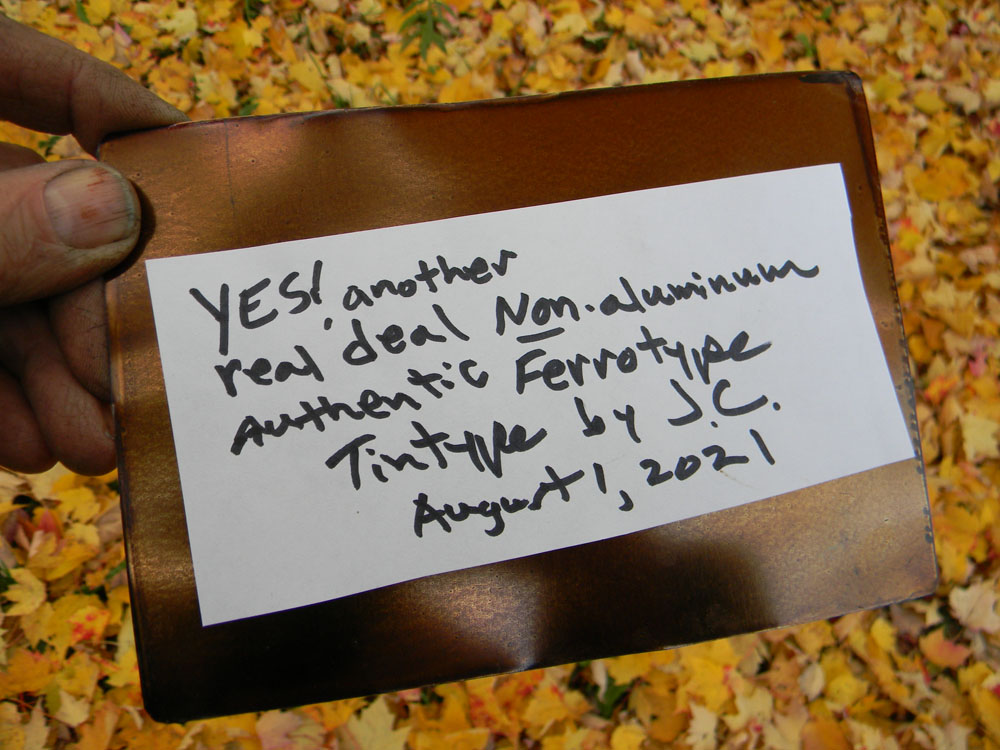 YES! another
real deal Non-aluminum
Authentic Ferrotype
Tintype by J.C.
August 1, 2021